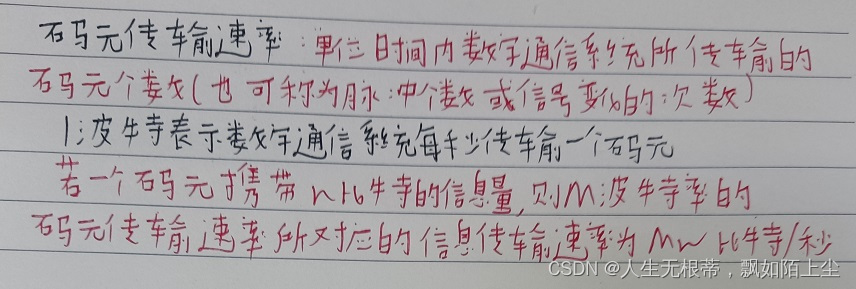 码元传输速率：单位时间内数字通信系统所传输的
码元个数(也可称为脉冲个数或信号变化的次数)
1波特表示数字通信系统每秒传输一个码元
若一个码元携带n比特的信息量,则M波特率的
码元传输速率所对应的信息传输速率为Mn比特/秒
CSDN @人生无根蒂，飘如陌上尘